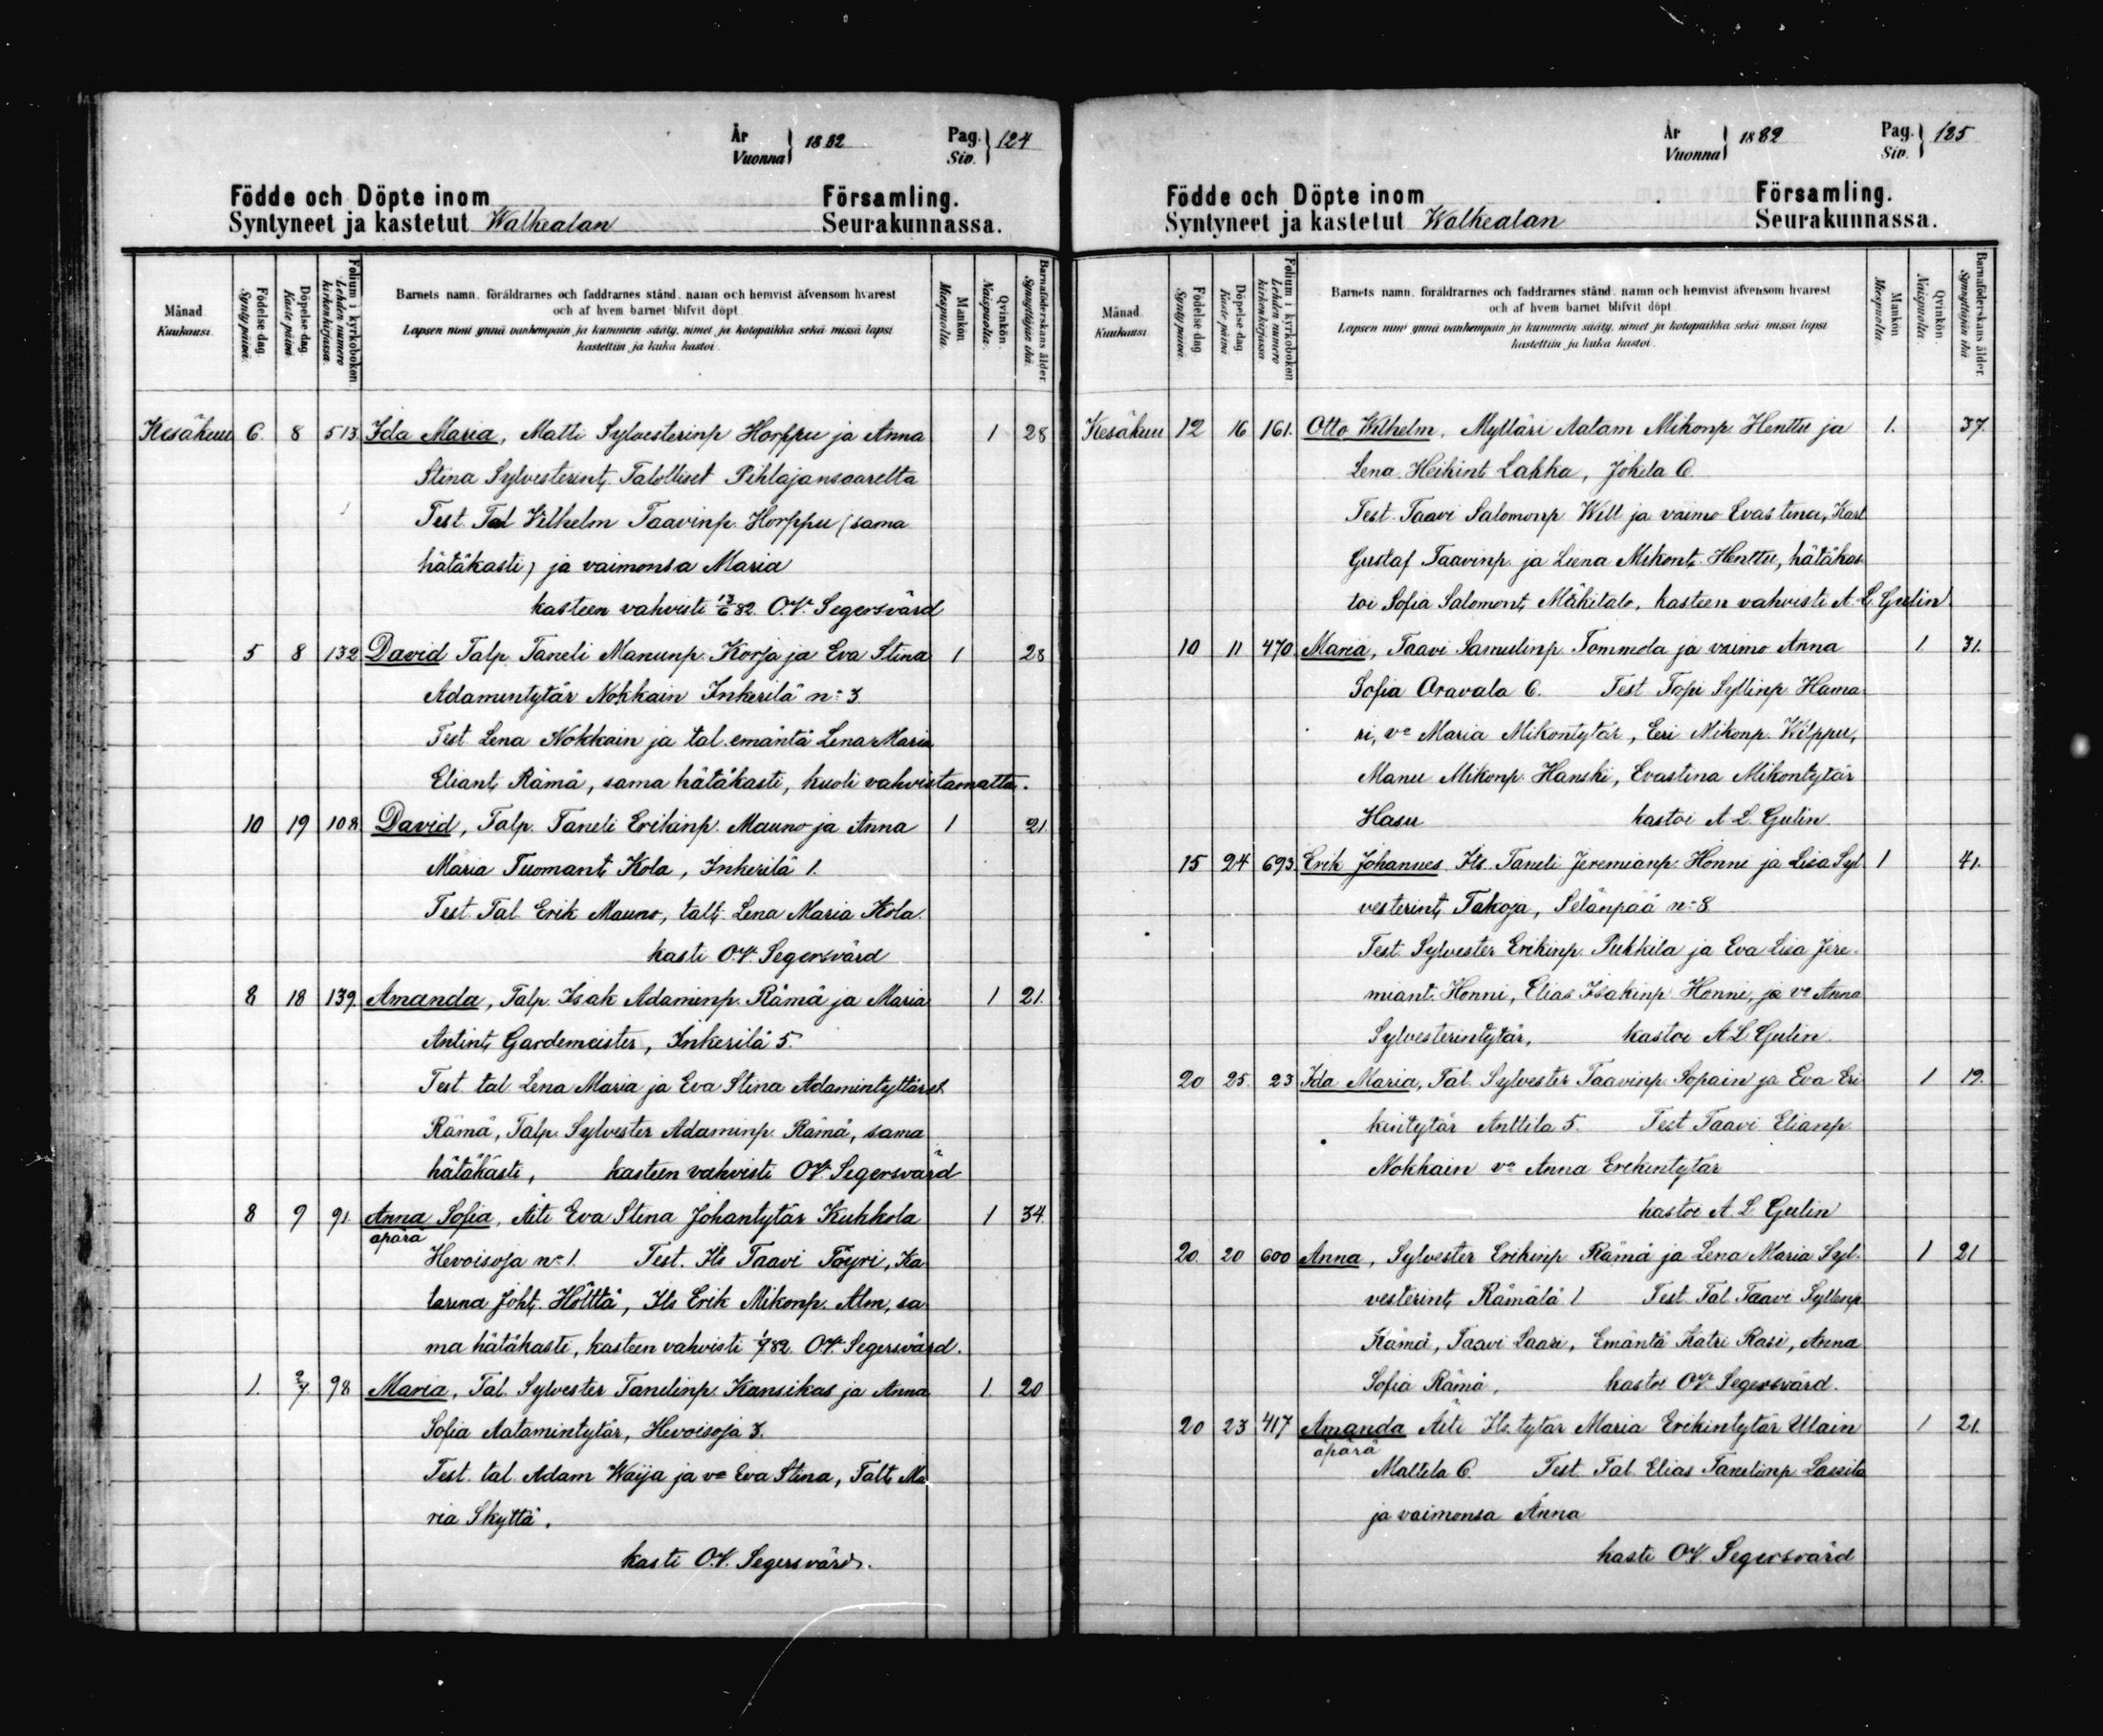 År
Vuonna } 1882 Pag.
Siv. } 124
Födde och Döpte inom Församling.
Syntyneet ja kastetut Walkealan Seurakunnassa.
Månad
Kuukausi.
Födelse dag
Synty päivä.
Döpelse dag
Kaste päivä.
Folium i kyrkoboken
Lehden numero
kirkonkirjassa.
Barnets namn, föräldrarnes och faddrarnes stånd, namn och hemvist äfvensom hvarest
och af hvem barnet blifvit döpt.
Lapsen nimi ynnä vanhempain ja kummein sääty, nimet ja kotopaikka sekä missä lapsi
kastettiin ja kuka kastoi.
Mankön
Miespuolia.
Qvinkön
Naispuolia.
Barnaföderskans ålder.
Synnyttäjän ikä.
Kesäkuu 6. 8 513. Ida Maria, Matti Sylvesterinp Horppu ja Anna 1 28
Stina Sylvesterint. Talolliset Pihlajansaarelta
Test. Tal Vilhelm Taavinp. Horppu (sama
hätäkasti) ja vaimonsa Maria
kasteen vahvisti 13/6 82. O.V. Segersvärd
5 8 132 David Talp Taneli Manunp. Korja ja Eva Stina 1 28
Adamintytär Nokkain Inkerilä n:o 3.
Test. Lena Nokkain ja tal. emäntä Lena Maria
Eliant. Rämä, sama hätäkasti, kuoli vahvistamatta.
10 19 108 David, Talp. Taneli Erikinp. Mauno ja Anna 1 21
Maria Tuomant. Kola, Inkerilä 1.
Test. Tal Erik Mauno, talt. Lena Maria Kola.
kasti O.V. Segersvärd
8 18 139. Amanda, Talp. Isak Adaminp. Rämä ja Maria 1 21.
Antint. Gardemeister, Inkerilä 5.
Test. tal. Lena Maria ja Eva Stina Adamintyttäret
Rämä, Talp. Sylvester Adaminp. Rämä, sama
hätäkasti, kasteen vahvisti O.V. Segersvärd
8 9 91. Anna Sofia, Äiti Eva Stina Johantytär Kuhkola 1 34.
äpärä
Hevoisoja n:o 1. Test. Its Taavi Töyri, Ka
tarina Joht. Hölttä, Its Erik Mikonp. Alm, sa
ma hätäkasti, kasteen vahvisti 1/7 82. O.V. Segersvärd.
1. 2/7 98 Maria, Tal. Sylvester Tanelinp. Kansikas ja Anna 1 20
Sofia Aatamintytär, Hevoisoja 3.
Test. tal. Adam Waija ja vo Eva Stina, Talt. Ma
ria Skyttä.
kasti O.V. Segersvärd.
År
Vuonna } 1882 Pag.
Siv. } 125
Födde och Döpte inom Församling.
Syntyneet ja kastetut Walkealan Seurakunnassa.
Månad
Kuukausi
Födelse dag
Synty päivä.
Döpelse dag
Kaste päivä.
Folium i kyrkoboken
Lehden numero
kirkonkirjassa
Barnets namn, föräldrarnes och faddrarnes stånd, namn och hemvist äfvensom hvarest
och af hvem barnet blifvit döpt.
Lapsen nimi ynnä vanhempain ja kummein sääty, nimet ja kotopaikka sekä missä lapsi
kastettiin ja kuka kastoi.
Mankön
Miespuolia.
Qvinkön
Naispuolia.
Barnaföderskans ålder.
Synnyttäjän ikä
Kesäkuu 12 16 161. Otto Wilhelm, Mylläri Aatam Mikonp. Henttu ja 1. 37.
Lena Heikint. Lakka, Jokela 6
Test. Taavi Salomonp Will ja vaimo Evastina, Karl
Gustaf Taavinp. ja Liena Mikont. Henttu, hätäkas
toi Sofia Salomont. Mäkitalo, kasteen vahvisti A.L. Gulin.
10 11 470 Maria, Taavi Samulinp. Tommola ja vaimo Anna 1 31.
Sofia Oravala 6. Test. Topi Syllinp. Hama
ri, vo Maria Mikontytär, Eeri Mikonp. Wilppu,
Manu Mikonp. Hanski, Evastina Mikontytär
Hasu kastoi A.L. Gulin.
15 24 693. Erik Johannes Its. Taneli Jeremianp. Honni ja Lisa Syl 1 41.
vesterint. Takoja, Selänpää n:o 8
Test. Sylvester Erikinp. Pukkila ja Eva Lisa Jere-
miant. Honni, Elias Isakinp Honni, ja vo Anna
Sylvesterintytär, kastoi A L Gulin.
20 25. 23 Ida Maria, Tal. Sylvester Taavinp. Sopain ja Eva Eri 1 19.
kintytär Anttila 5. Test. Taavi Elianp
Nokkain vo Anna Erikintytär
kastoi A. L Gulin
20. 20 600 Anna, Sylvester Erikinp Rämä ja Lena Maria Syl- 1 21
vesterint. Rämälä 1 Test. Tal Taavi Syllinp
Rämä, Taavi Laari, Emäntä Katri Rasi, Anna
Sofia Rämä, kastoi O.V. Segersvärd.
20 23 417 Amanda Äiti Its. tytär Maria Erikintytär Utain 1 21.
äpärä
Mattila 6. Test. Tal. Elias Tanelinp Lassila
ja vaimonsa Anna
kasti O V Segersvärd